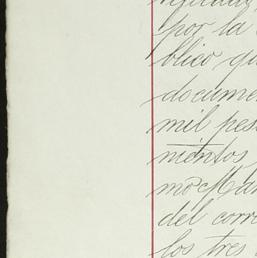 por la
blico qu
docume
mil pes
nientos
mo Man
del corr
los tres